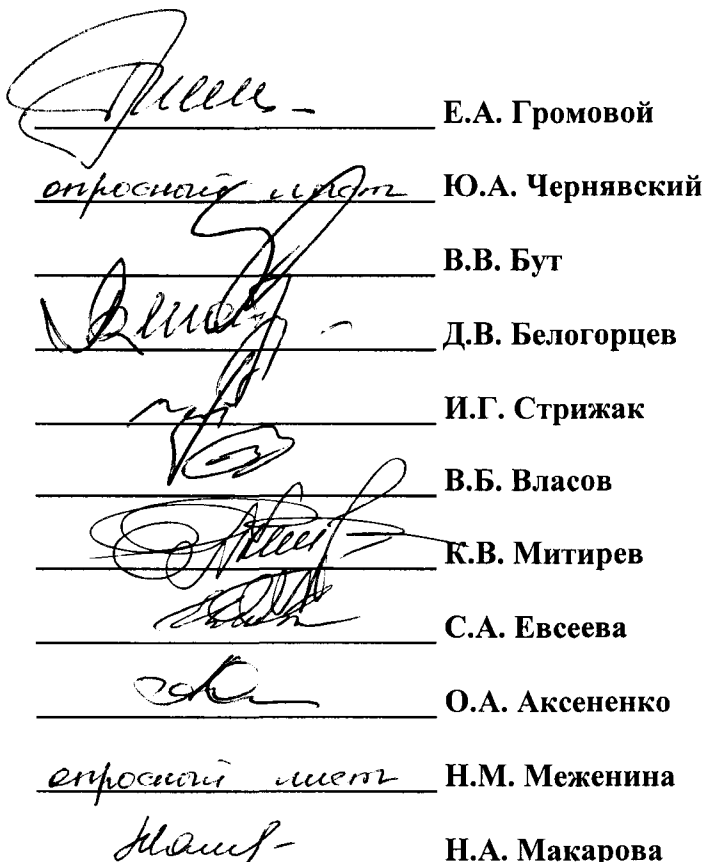 Е.А. Громовой
опросный лист Ю.А. Чернявский
В.В. Бут
Д.В. Белогорцев
И.Г. Стрижак
В.Б. Власов
К.В. Митирев
С.А. Евсеева
О.А. Аксененко
опросный лист Н.М. Меженина
Н.А. Макарова